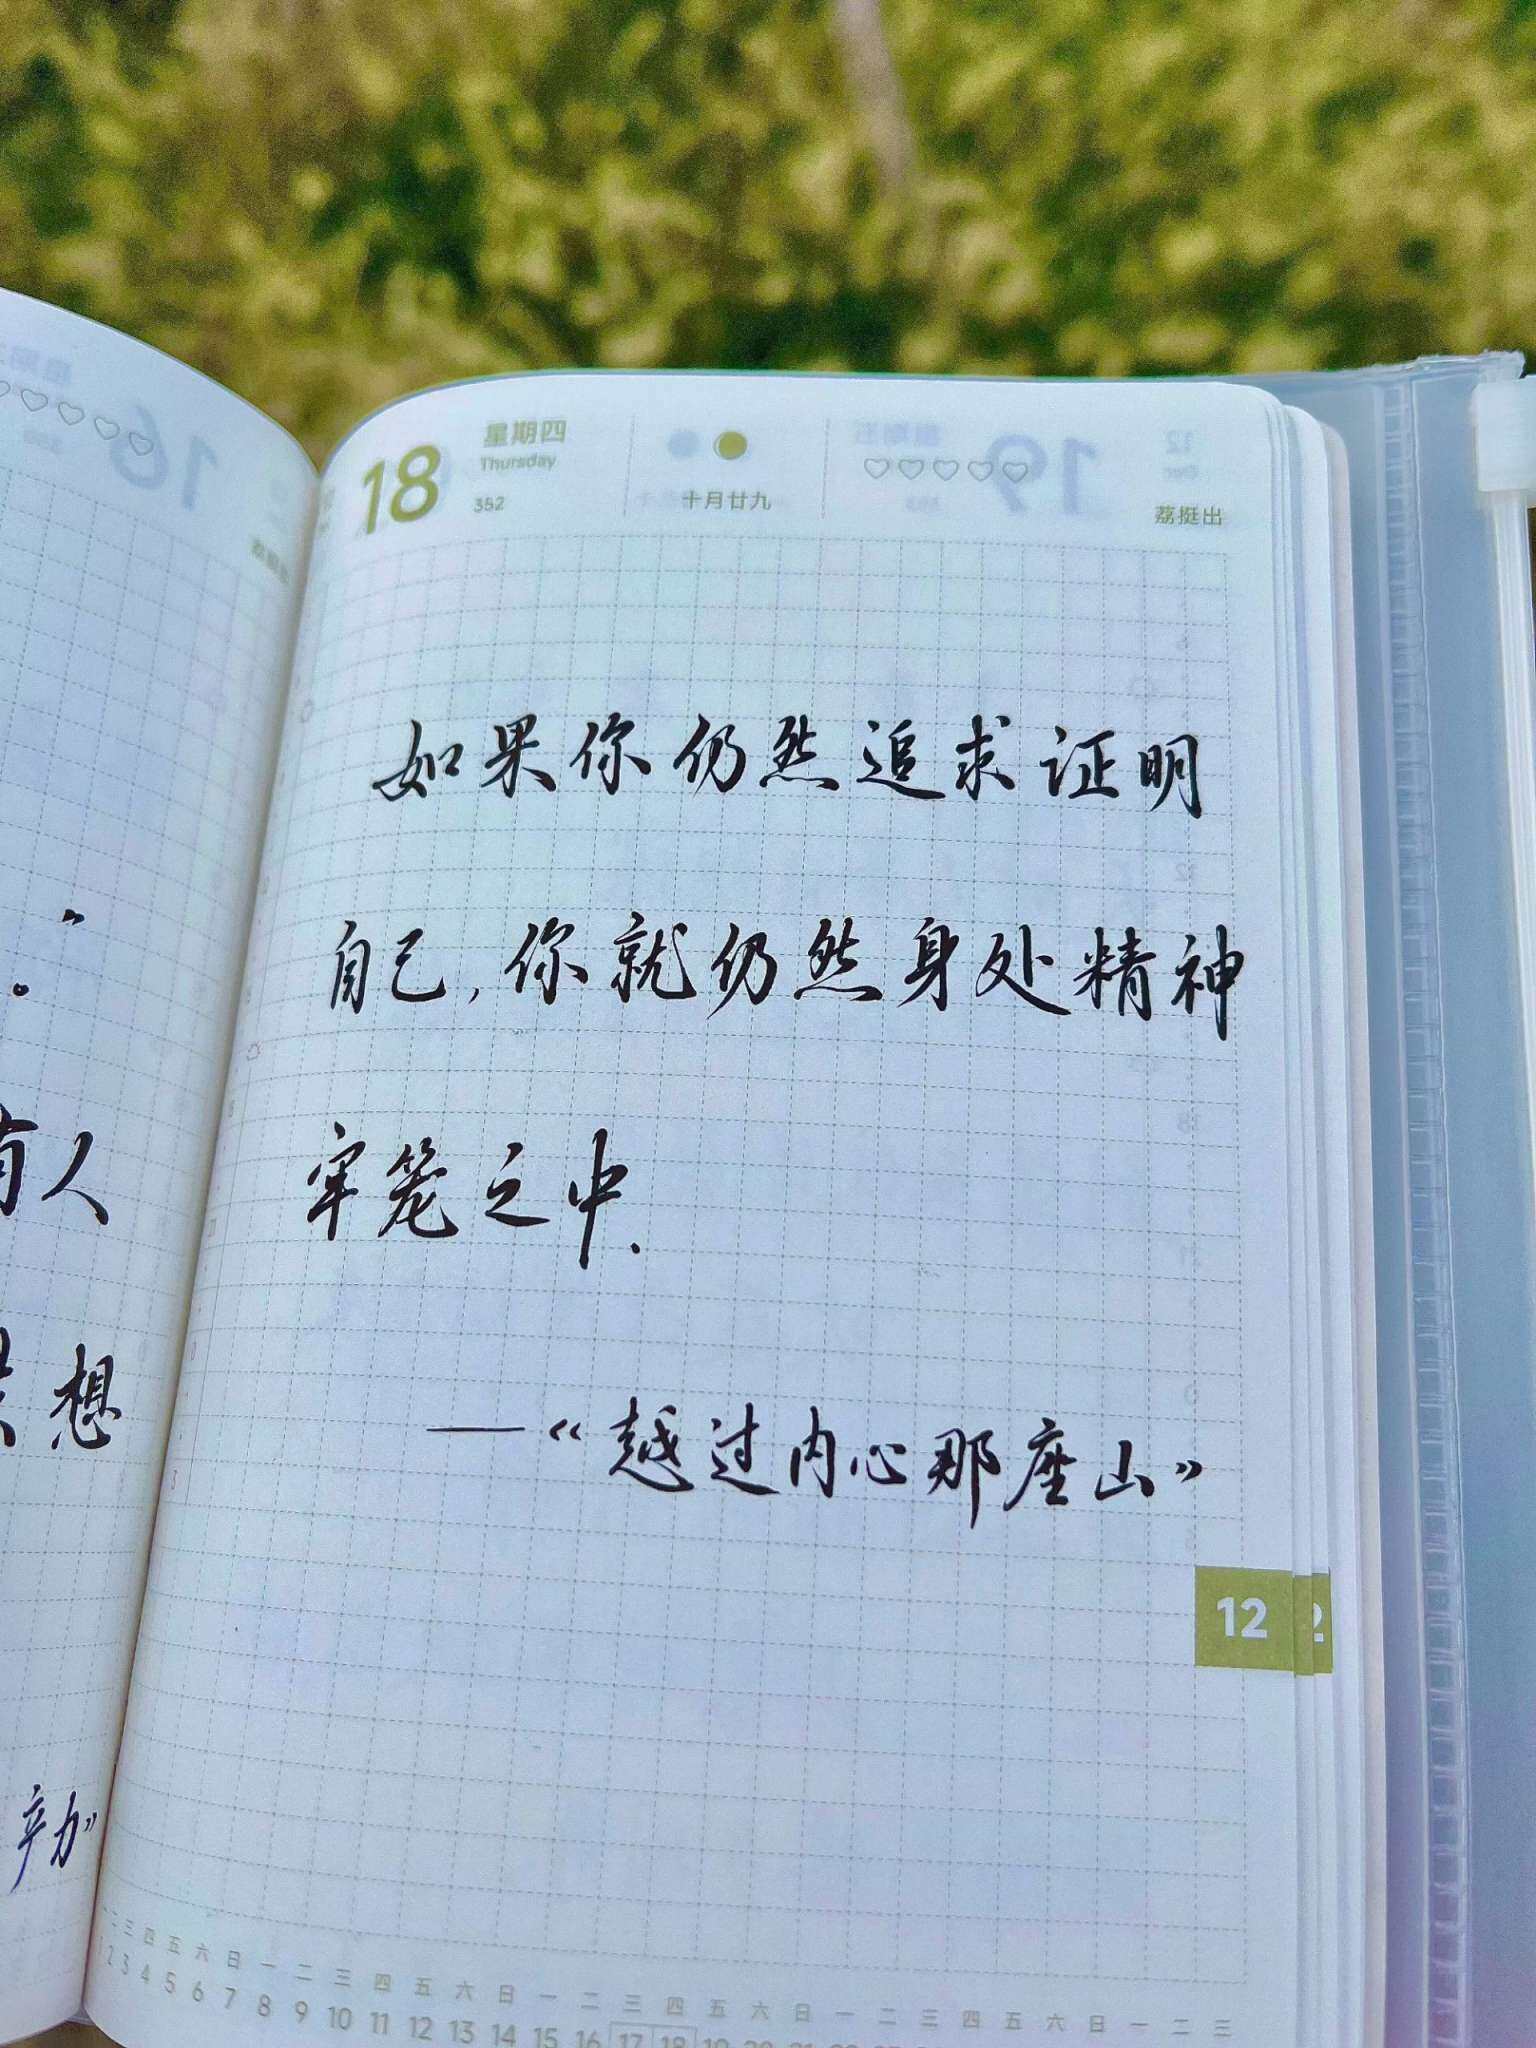 。”
有人
想
辛力》
18
星期四
Thursday
352
十月廿九
荔挺出
如果你仍然追求证明
自己，你就仍然身处精神
牢笼之中.
——《越过内心那座山》
12
一 二 三 四 五 六 日 一 二 三 四 五 六 日 一 二 三 四 五 六 日 一 二 三 四 五 六 日 一 二 三
1 2 3 4 5 6 7 8 9 10 11 12 13 14 15 16 17 18 19 20 21 22